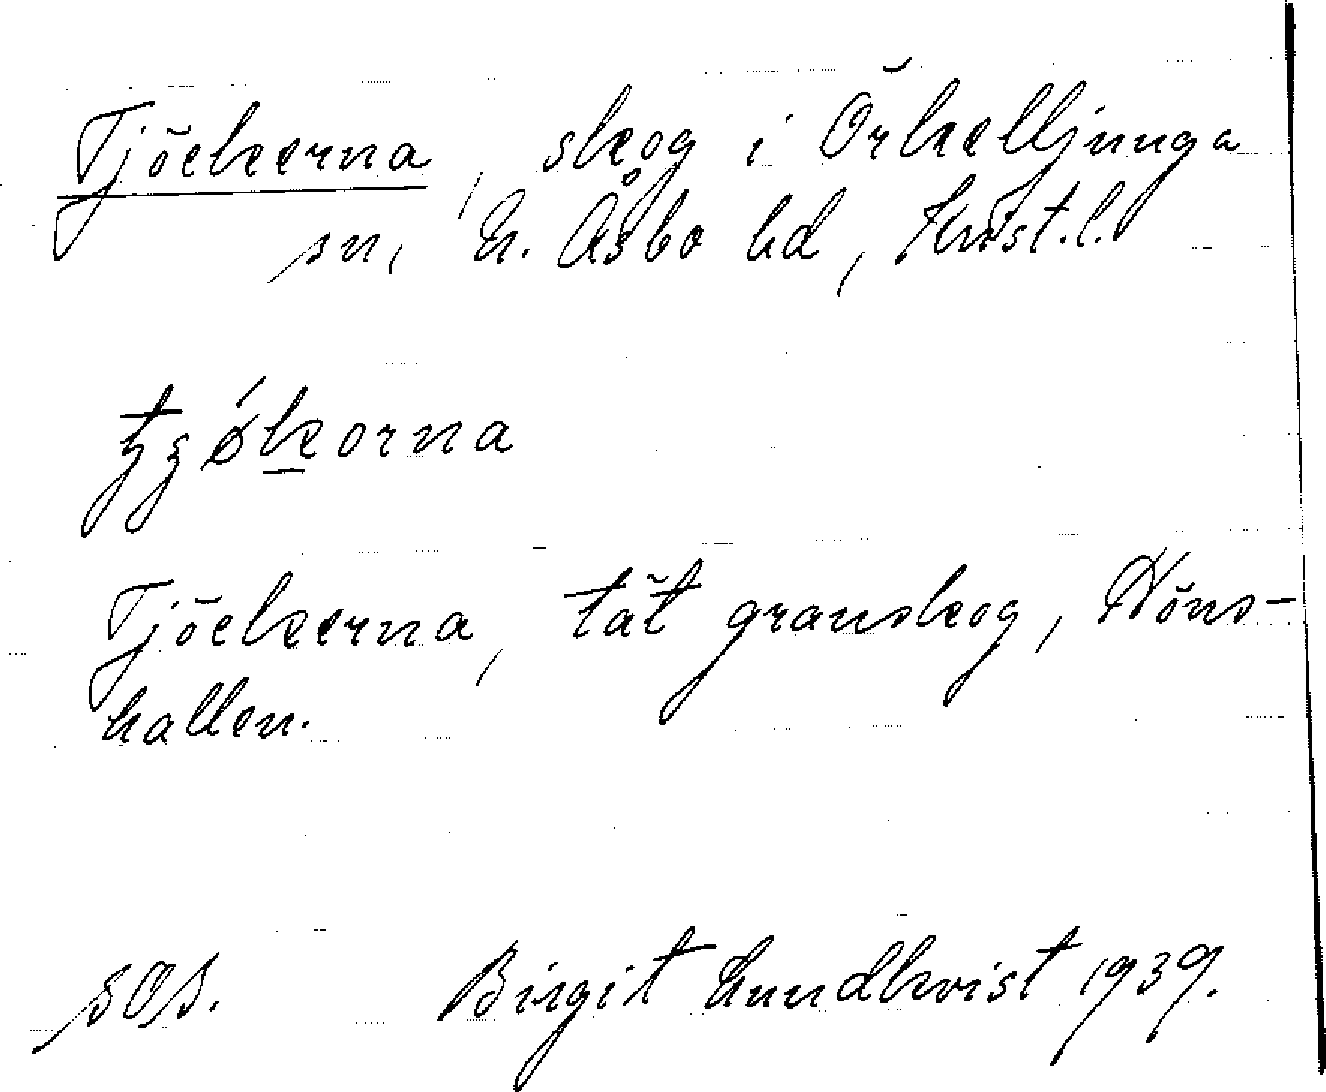 Tjöckerna, skog i Örkelljunga
sn, N. Åsbo hd, Krist.l.
Tjöckerna, tät granskog, Höns-
hallen.
SOS. Birgit Lundkvist 1939.